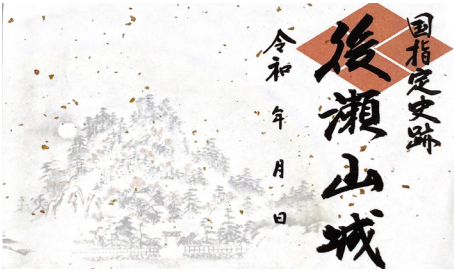 国指定史跡
後瀬山城
令和 年 月 日